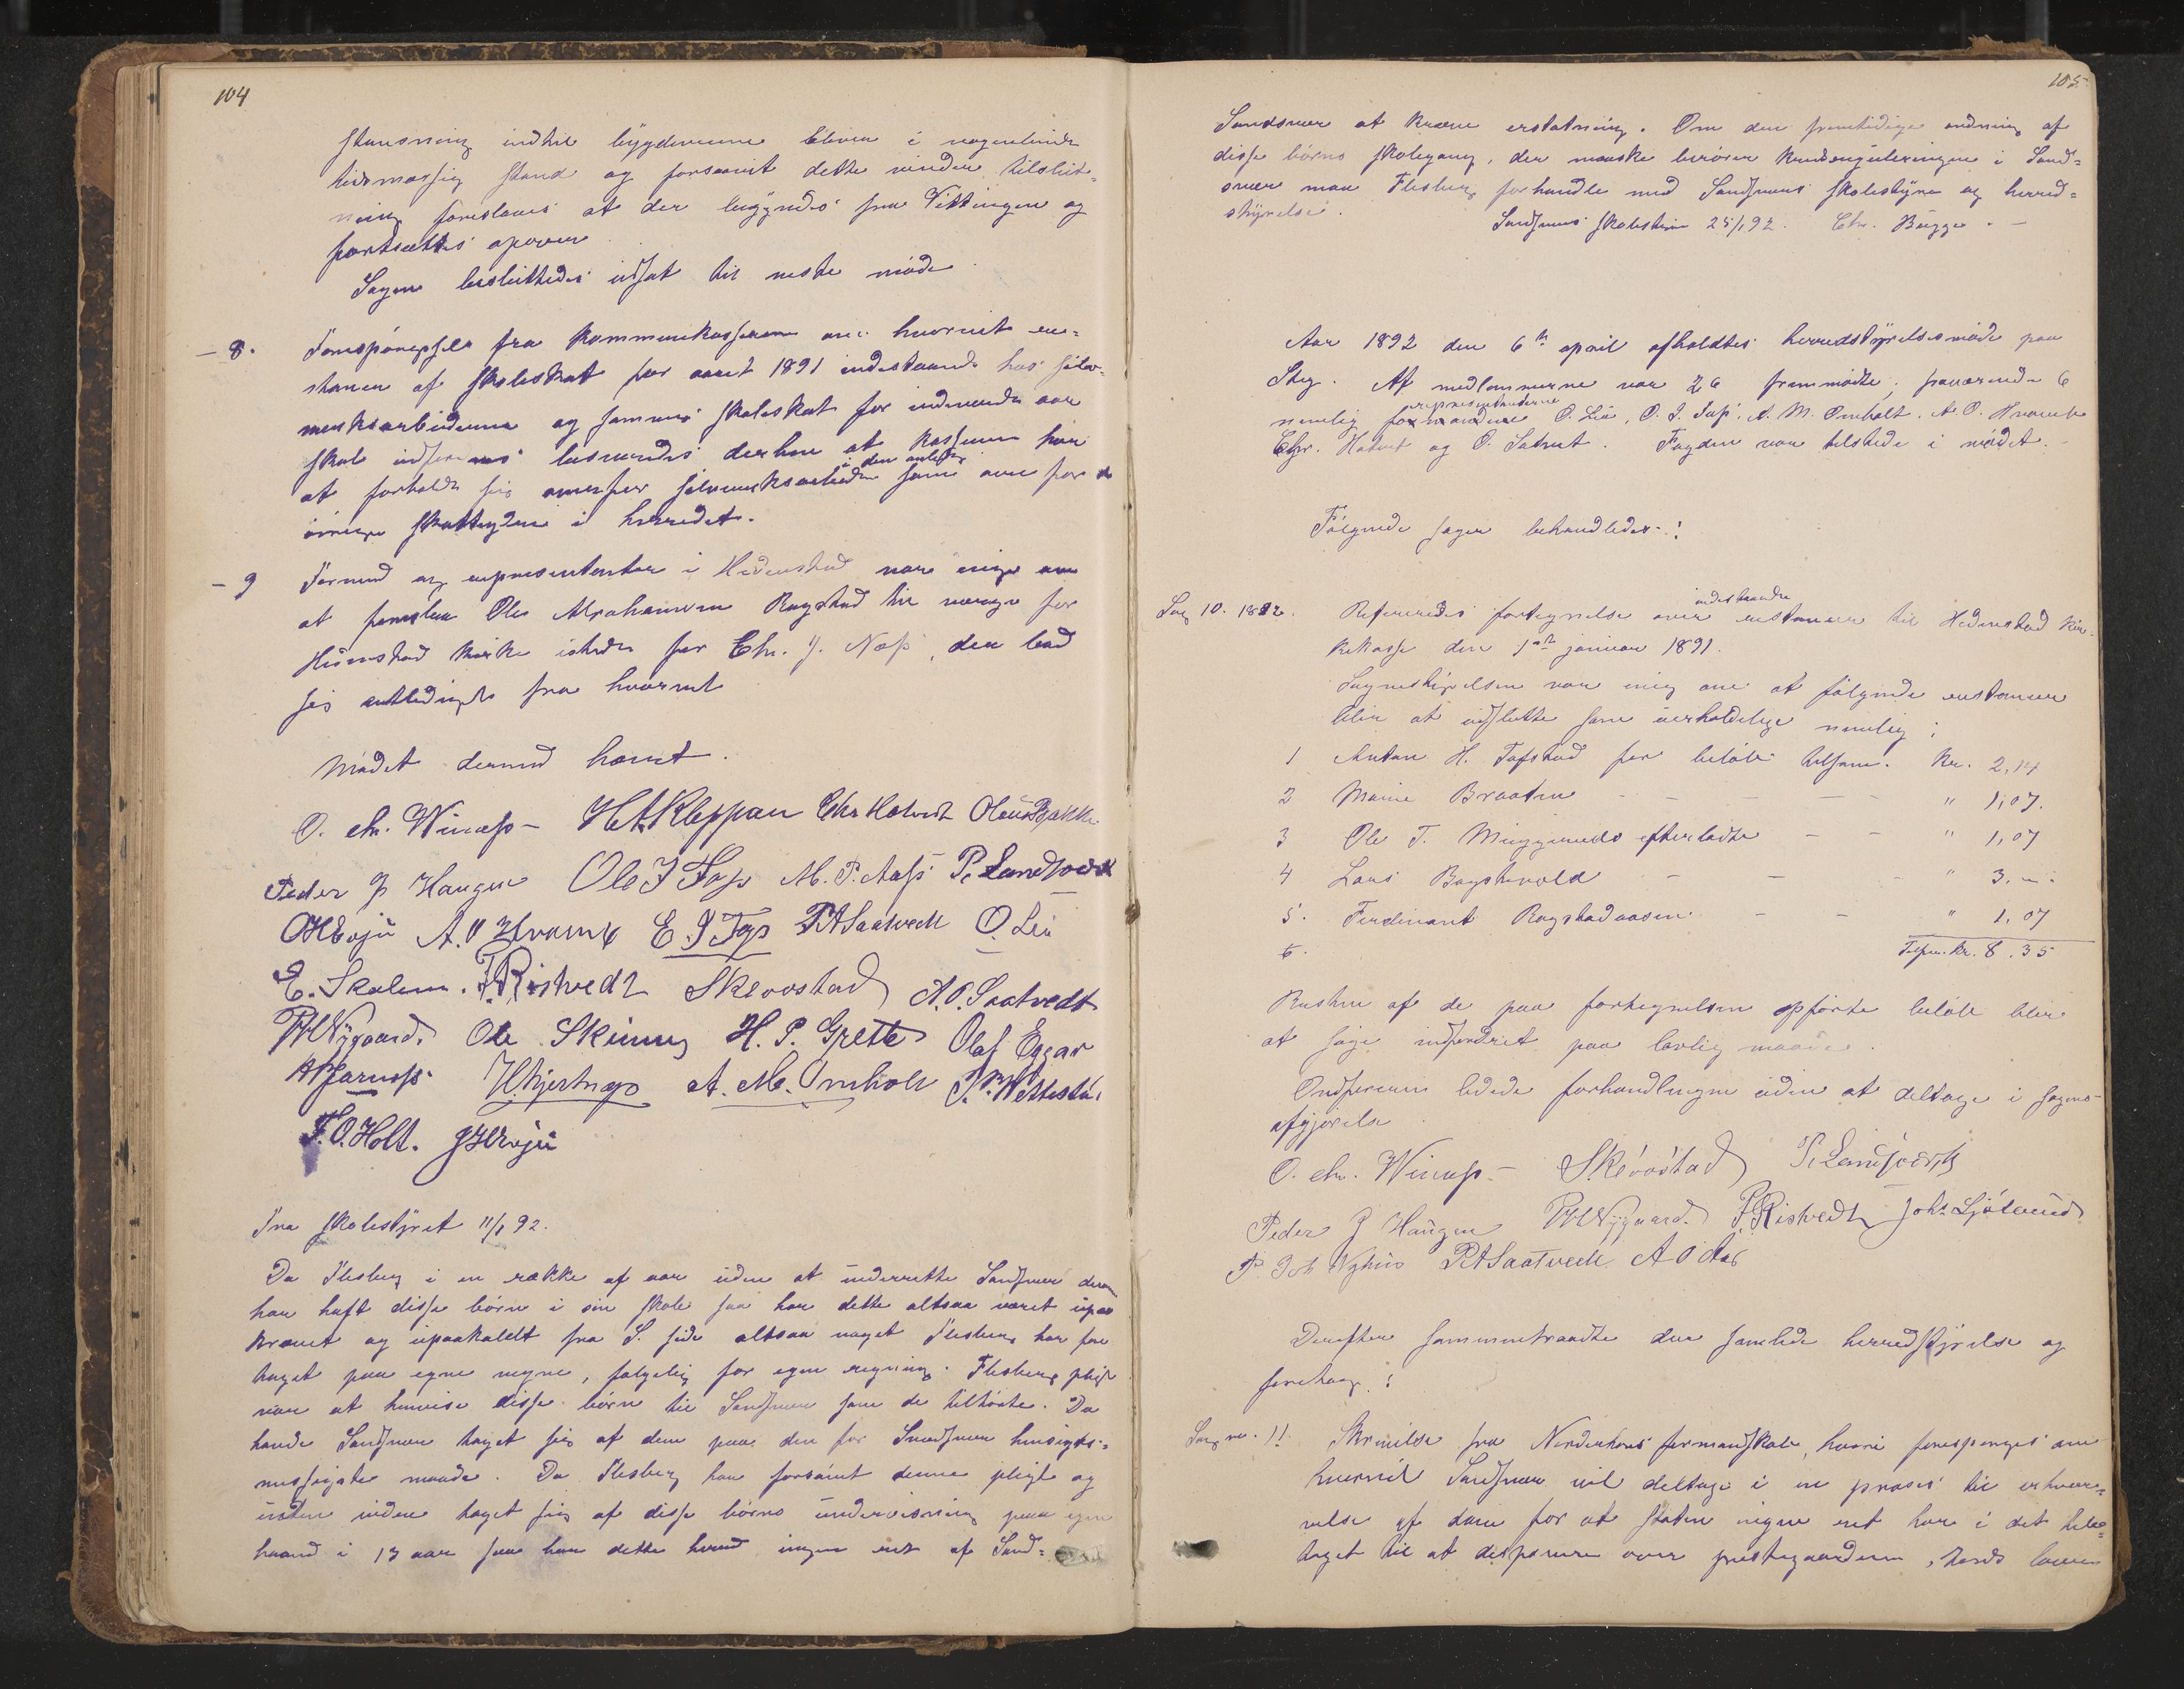 104
stansning indtil bygderne bliver i nogenlunde
tidsmæssig stand og forsaavit dette vinder tilslut-
ning foreslaaes at der begyndes fra Vittingen og
fortsættes opover
Sagen besluttedes udsat til neste møde.
- 8. Forespørgsel fra kommunekassereren om hvorvit re-
stancer af skoleskat for aaret 1891 indestaaende hos sølv-
verksarbeiderne og sammes skoleskat for indeværende aar
skal inddrives besvaredes derhen at kasseren har
i den anledn.
at forholde sig overfor sølvverksarbeiderne som ovenfor de
øvrige skatteydere i herredet.
- 9 Formænd og repræsentanter i Hedenstad var enige om
at foreslaa Ole Abrahamsen Ragstad til værge for
Hedenstad kirke istedet for Chr. J. Næss, der bad
sig entlediget fra hvervet
Mødet dermed hævet.
O. Chr. Winness H A Kleppan Chr Hotvedt Olaus Bakke
Peder J Haugen Ole J Foss M. P. Aass P. Landsverk
O H Evju A. O Hvambe E. J Foss P A Saatvedt O. Lia
E. Skalien. P. Ristvedt S Kevostad A. O. Saatvedt
P H Nygaard. Ole Skinnes H. P. Grette Olaf Eggar
H Hjertnæs A. M. Omholt
F. O. Holt. J H Evju
Fra skolestyret 11/1 92.
Da Flesberg i en række af aar uden at underrette Sandsvær derom
har haft disse børn i sin skole saa har dette altsaa været upaa
krævet og upaakaldt fra S. side altsaa noget Flesberg har fore
taget paa egne vegne, følgelig for egen regning. Flesbergs pligt
var at henvise disse børn til Sandsvær som de tilhørte. Da
havde Sandsvær taget sig af dem paa den for Sandsvær hensigts-
messigste maade. Da Flesberg har forsømt denne pligt og
uden videre taget sig af disse børns undervisning paa egen
haand i 13 aar saa har dette herred ingen ret af Sand-
105
Sandsvær at kræve erstatning. Om den fremtidige ordning af
disse børns skolegang, der maaske berører kredsreguleringen i Sand-
svær maa Flesberg forhandle med Sandsværs skolestyre og herred-
styrelse.
Sandsværs skolestyre 25/1 92. Chr. Bugge. -
Aar 1892 den 6te april afholdtes herredstyrelsesmøde paa
Steg. Af medlemmerne var 26 fremmødte, fraværende 6
repræsentanterne
nemlig formændene O. Lia, O. J. Foss, A. M. Omholt, A. O. Hvambe
Chr. Hotvet og O. Satvet. Fogden var tilstede i mødet. -
Følgende sager behandledes:
indestaaende
Sag 10. 1892. Refereredes fortegnelse over restancer til Hedenstad kir-
kekasse den 1ste januar 1891.
Sognestyrelsen var enig om at følgende restancer
blir at udslette som uerholdelige nemlig:
1 Anton H. Tofstad for beløb tilsam. Kr. 2,14
2 Marie Braaten - - - - " 1,07.
3 Ole T. Muggeruds efterladte - - " 1,07
4 Lars Bagstevold - - - " 3. " .
5. Ferdinant Ragstadaasen - - " 1,07
6. Tilsm. kr. 8.35
Resten af de paa fortegnelsen opførte beløb blir
at søge inddrevet paa lovlig maade.
Ordføreren ledede forhandlingen uden at deltage i sagens
afgjørelse
O. Chr. Winness - S Kevostad P. Landsverk
Peder J Haugen P H Nygaard. P. Ristvedt Johs Ljøterud
P. Joh Nyhus P A Saatvedt A O Aas
Derefter sammentraadte den samlede herredstyrelse og
foretog:
Sag no. 11. Skrivelse fra Norderhovs formandskab, hvori forespørges om
hvorvit Sandsvær vil deltage i en proces til erhver-
velse af dom for at staten ingen ret har i det hele
taget til at disponere over prestegaardene, dens laaner